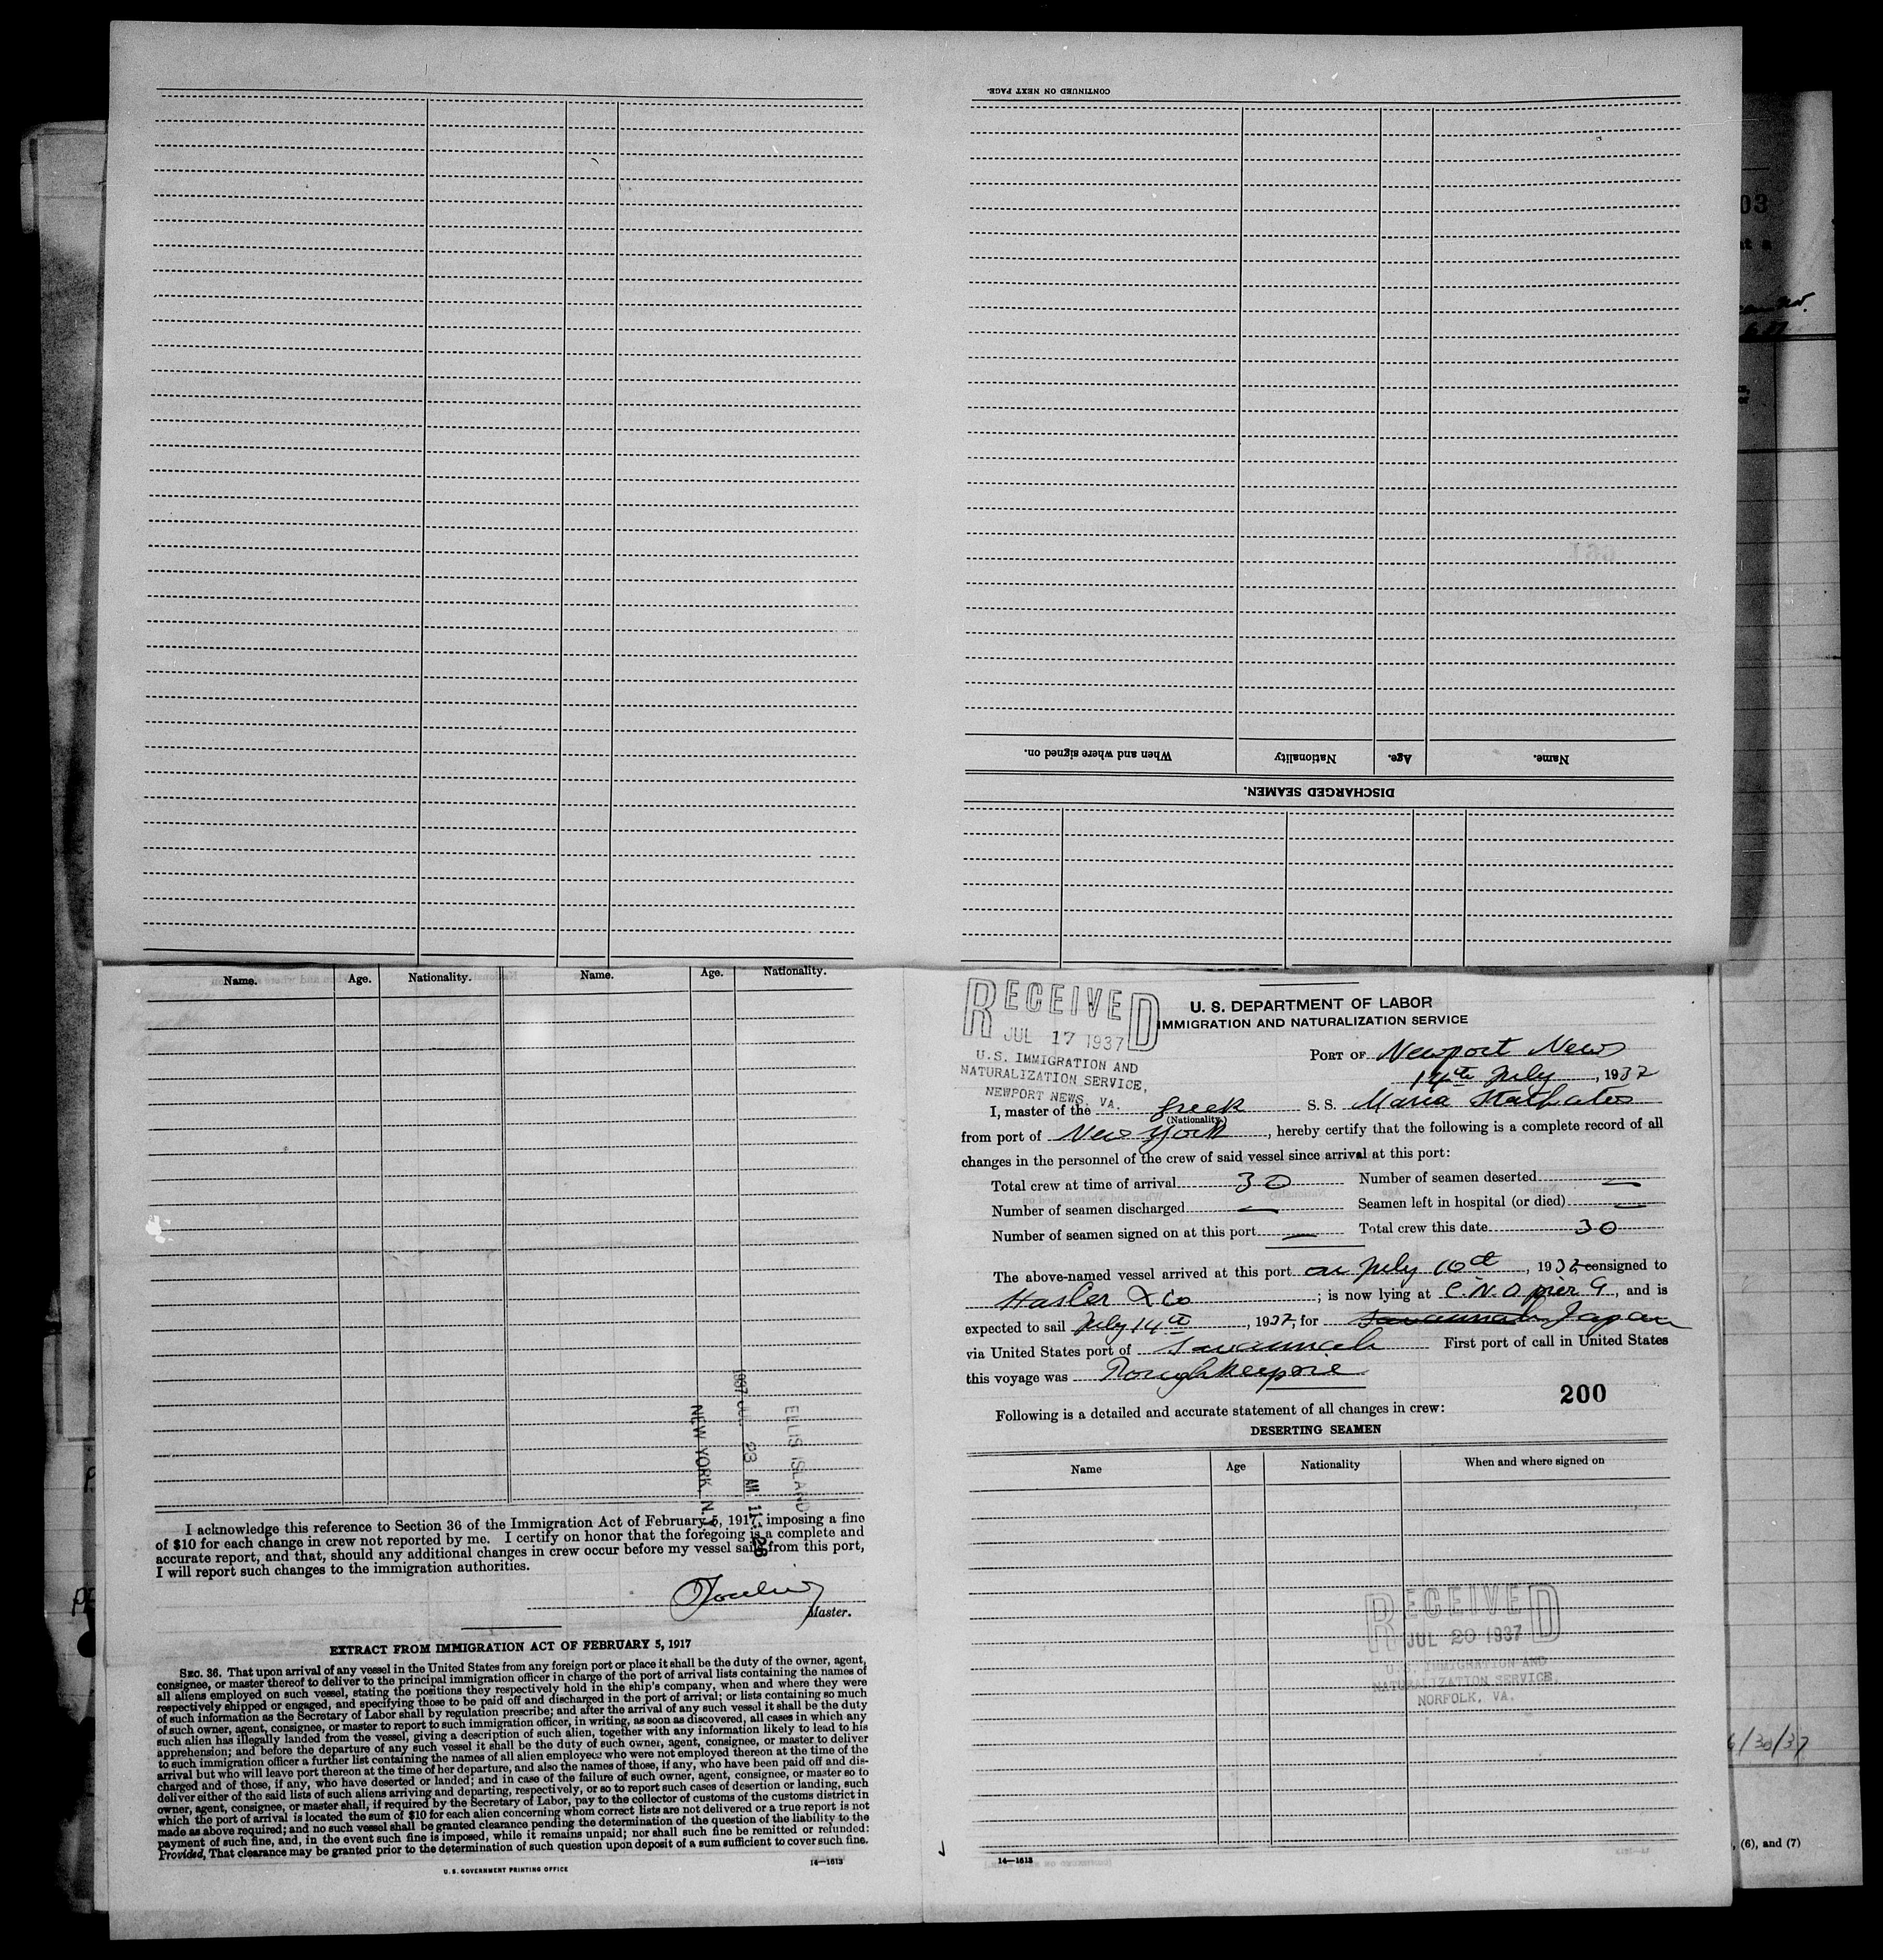 CONTINUED ON NEXT PAGE.
When and where signed on.
Nationality
Age.
Name.
DISCHARGED SEAMEN.
Name. Age. Nationality. Name. Age. Nationality.
1937 JUL 23 AM 11: 28
ELLIS ISLAND
NEW YORK, N.Y.
I acknowledge this reference to Section 36 of the Immigration Act of February 5, 1917, imposing a fine
of $10 for each change in crew not reported by me. I certify on honor that the foregoing is a complete and
accurate report, and that, should any additional changes in crew occur before my vessel sails from this port,
I will report such changes to the immigration authorities.
Master.
EXTRACT FROM IMMIGRATION ACT OF FEBRUARY 5, 1917
SEC. 36. That upon arrival of any vessel in the United States from any foreign port or place it shall be the duty of the owner, agent,
consignee, or master thereof to deliver to the principal immigration officer in charge of the port of arrival lists containing the names of
all aliens employed on such vessel, stating the positions they respectively hold in the ship's company, when and where they were
respectively shipped or engaged, and specifying those to be paid off and discharged in the port of arrival; or lists containing so much
of such information as the Secretary of Labor shall by regulation prescribe; and after the arrival of any such vessel it shall be the duty
of such owner, agent, consignee, or master to report to such immigration officer, in writing, as soon as discovered, all cases in which any
such alien has illegally landed from the vessel, giving a description of such alien, together with any information likely to lead to his
apprehension; and before the departure of any such vessel it shall be the duty of such owner, agent, consignee, or master to deliver
to such immigration officer a further list containing the names of all alien employees who were not employed thereon at the time of the
arrival but who will leave port thereon at the time of her departure, and also the names of those, if any, who have been paid off and dis-
charged and of those, if any, who have deserted or landed; and in case of the failure of such owner, agent, consignee, or master so to
deliver either of the said lists of such aliens arriving and departing, respectively, or so to report such cases of desertion or landing, such
owner, agent, consignee, or master shall, if required by the Secretary of Labor, pay to the collector of customs of the customs district in
which the port of arrival is located the sum of $10 for each alien concerning whom correct lists are not delivered or a true report is not
made as above required; and no such vessel shall be granted clearance pending the determination of the question of the liability to the
payment of such fine, and, in the event such fine is imposed, while it remains unpaid; nor shall such fine be remitted or refunded:
Provided, That clearance may be granted prior to the determination of such question upon deposit of a sum sufficient to cover such fine.
U. S. GOVERNMENT PRINTING OFFICE 14—1613
RECEIVED
JUL 17 1937
U.S. IMMIGRATION AND
NATURALIZATION SERVICE,
NEWPORT NEWS, VA.
U. S. DEPARTMENT OF LABOR
IMMIGRATION AND NATURALIZATION SERVICE
PORT OF Newport News
14th July, 1937
I, master of the Greek S. S. Maria Stathatos
(Nationality)
from port of New York, hereby certify that the following is a complete record of all
changes in the personnel of the crew of said vessel since arrival at this port:
Total crew at time of arrival 30 Number of seamen deserted —
Number of seamen discharged — Seamen left in hospital (or died) —
Number of seamen signed on at this port — Total crew this date 30
The above-named vessel arrived at this port on July 10th, 1937 consigned to
Hasler & Co; is now lying at C. N. O pier 9, and is
expected to sail July 14th, 1937, for Savannah Japan
via United States port of Savannah First port of call in United States
this voyage was Poughkeepsie
200
Following is a detailed and accurate statement of all changes in crew:
DESERTING SEAMEN
Name Age Nationality When and where signed on
RECEIVED
JUL 20 1937
U.S. IMMIGRATION AND
NATURALIZATION SERVICE,
NORFOLK, VA.
14—1613
03
6/30/37
, (6), and (7)